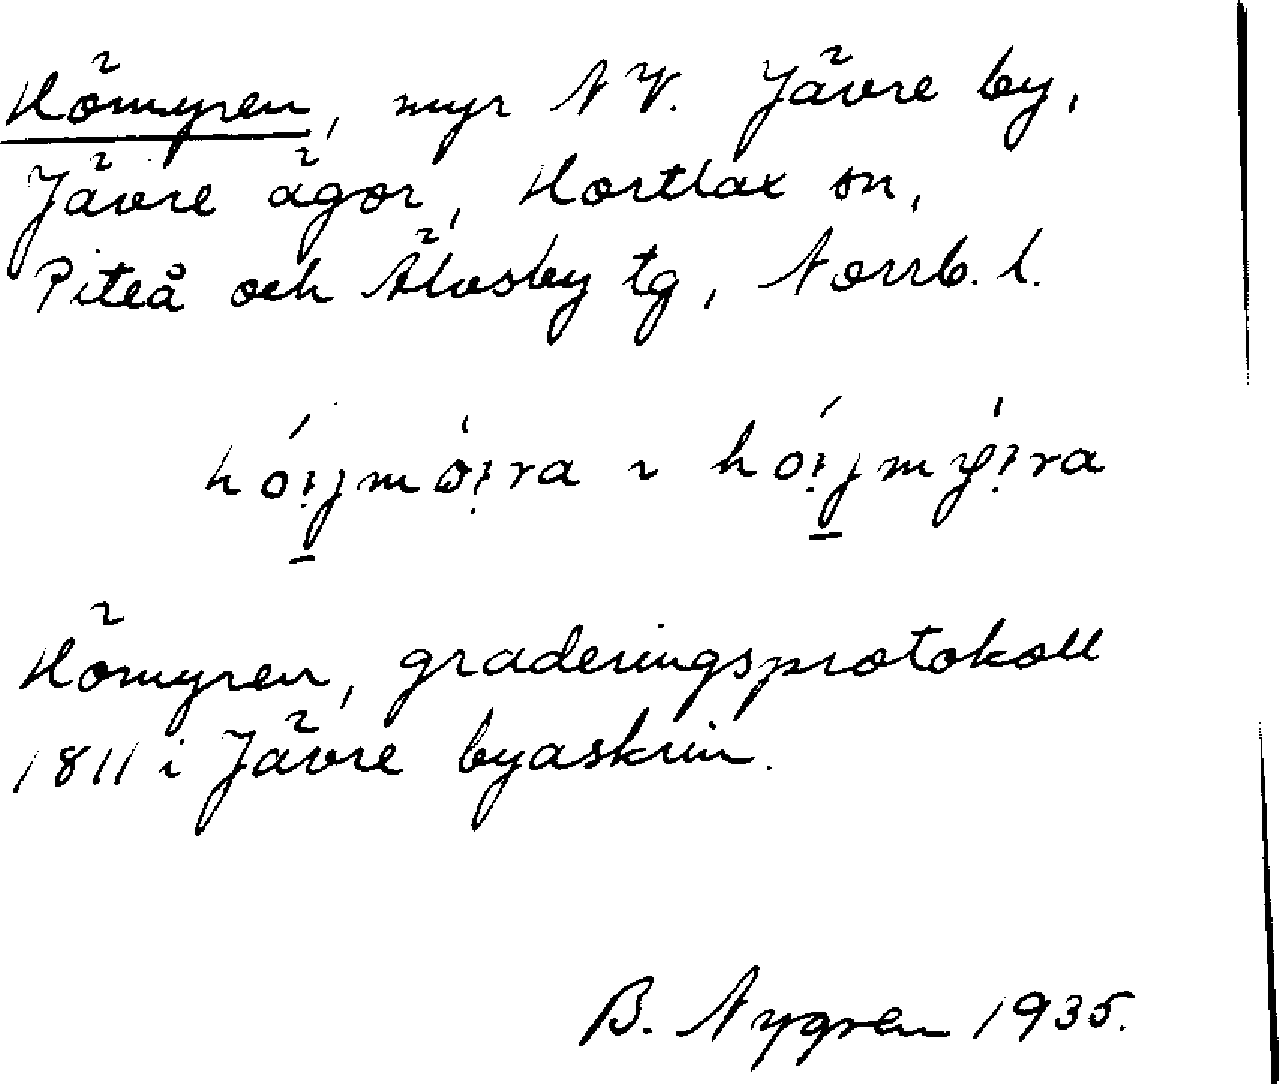 Hömyren, myr NV. Jävre by,
Jävre ägor, Hortlax sn,
Piteå och Älvsby tg, Norrb. l.
Hömyren, graderingsprotokoll
1811 i Jävre byaskrin.
B. Nygren 1935.